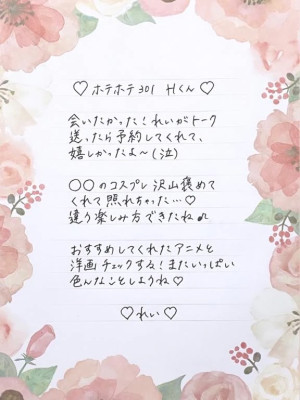 ♡ ホテホテ301 Hくん ♡
会いたかった！れいがトーク
送ったら予約してくれて、
嬉しかったよ〜(泣)
○○のコスプレ沢山褒めて
くれて照れちゃった…♡
違う楽しみ方できたね♪
おすすめしてくれたアニメと
洋画チェックする！またいっぱい
色んなことしようね♡
♡ れい ♡